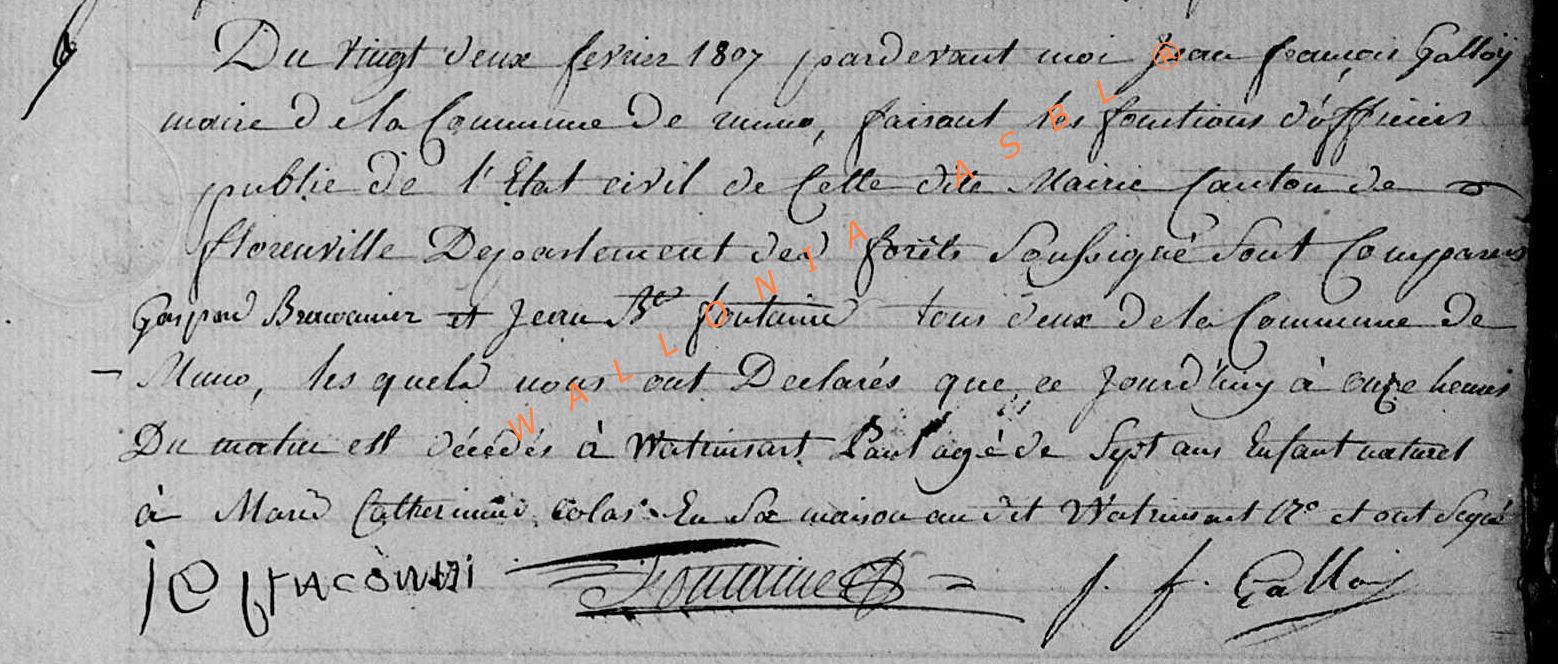 Du vingt deux fevrier 1807 pardevant moi Jean françois Galloÿ
maire de la Commune de muno, faisant les fonctions d'officier
public de l'Etat civil de Celle dite Mairie Canton de
florenville Departement des forêts Soussigné Sont Comparus
Gaspard et Jean Bte fontaine tous deux de la Commune de
Muno, les quels nous ont Declarés que ce Jourd'huy à onze heures
Du matin est décédés à Watrinsart Paul agé de Sept ans Enfant naturel
à Marie Catherinne colas En Sa maison au dit Watrinsart No et ont Signé
Fontaine J. f. Galloÿ
WALLONIA ASBL ®